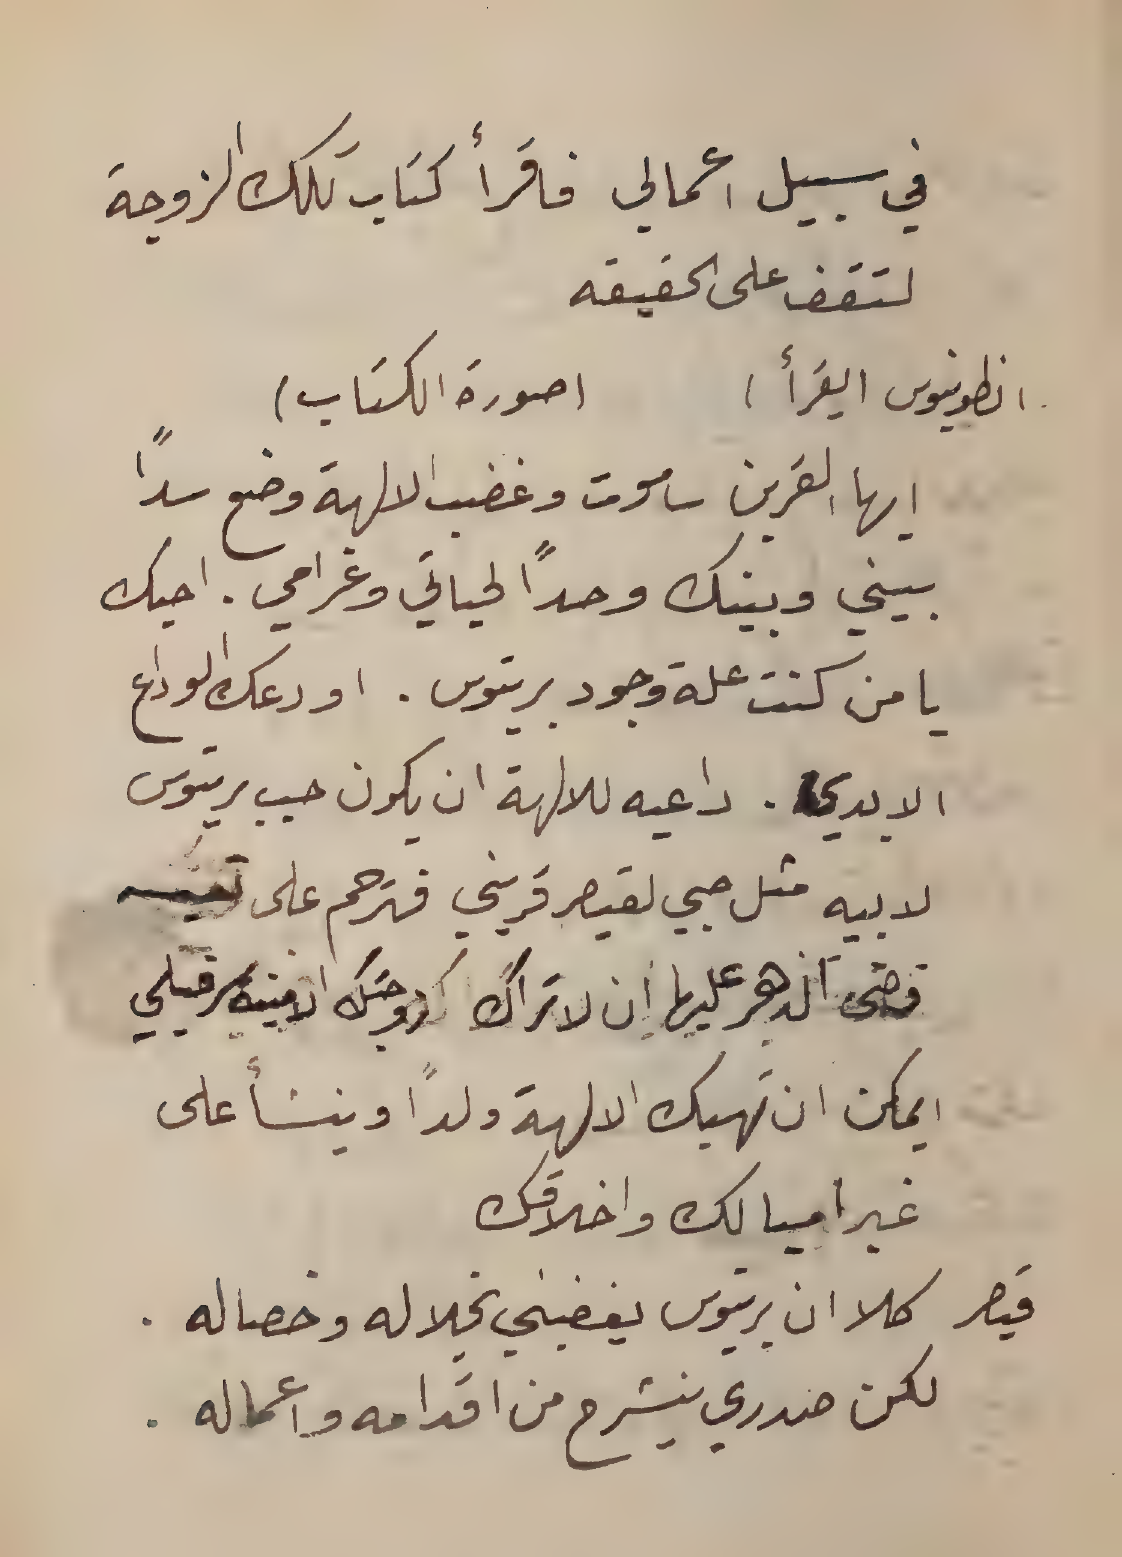 في سبيل اعمالي فاقرأ كتاب تلك الزوجة
لتقف على الحقيقه
انطونيوس (يقرأ) (صورة الكتاب)
ايها القرين ساموت وغضب الالهة وضع سدًا
بيني وبينك وحدًا لحياتي وغرامي . احبك
يا من كنت علة وجود بريتوس . اودعك الوداع
الابدي . داعيه للالهة ان يكون حب بريتوس
لابيه مثل حبي لقيصر قريني فترحم على
قضى الدهر عليها ان لا تراك زوجتك الامينة سرفيلي
ايمكن ان تهبك الالهة ولدًا وينشأ على
غير اميالك واخلاقك
قيصر كلا ان بريتوس يغضبني بخلاله وخصاله .
لكن صدري ينشرح من اقدامه واعماله .